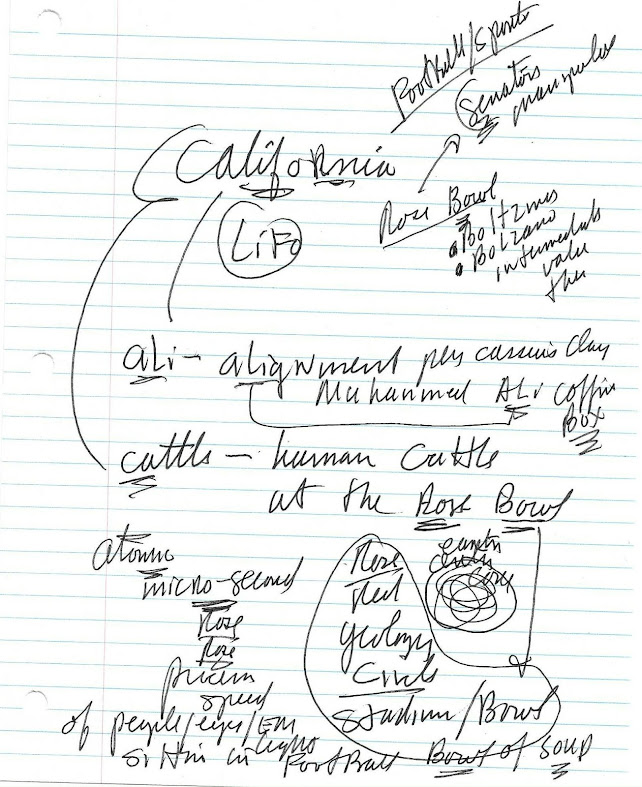 Football/sports
Senators
manipulate
California
LiFo
Rose Bowl
Boltzmes
Bolzano
intermediate
value
ther
ali - alignment per cassius clay
Muhammed ALi coffin
Box
cattle - human cattle
at the Rose Bowl
earth
center
core
atomic
micro-second
Rose
Rose
speed
of people/eyes/EM
light
Sittin in FootBall
Rose
Red
geology
Circle
stadium/Bowl
Bowl of SOUP